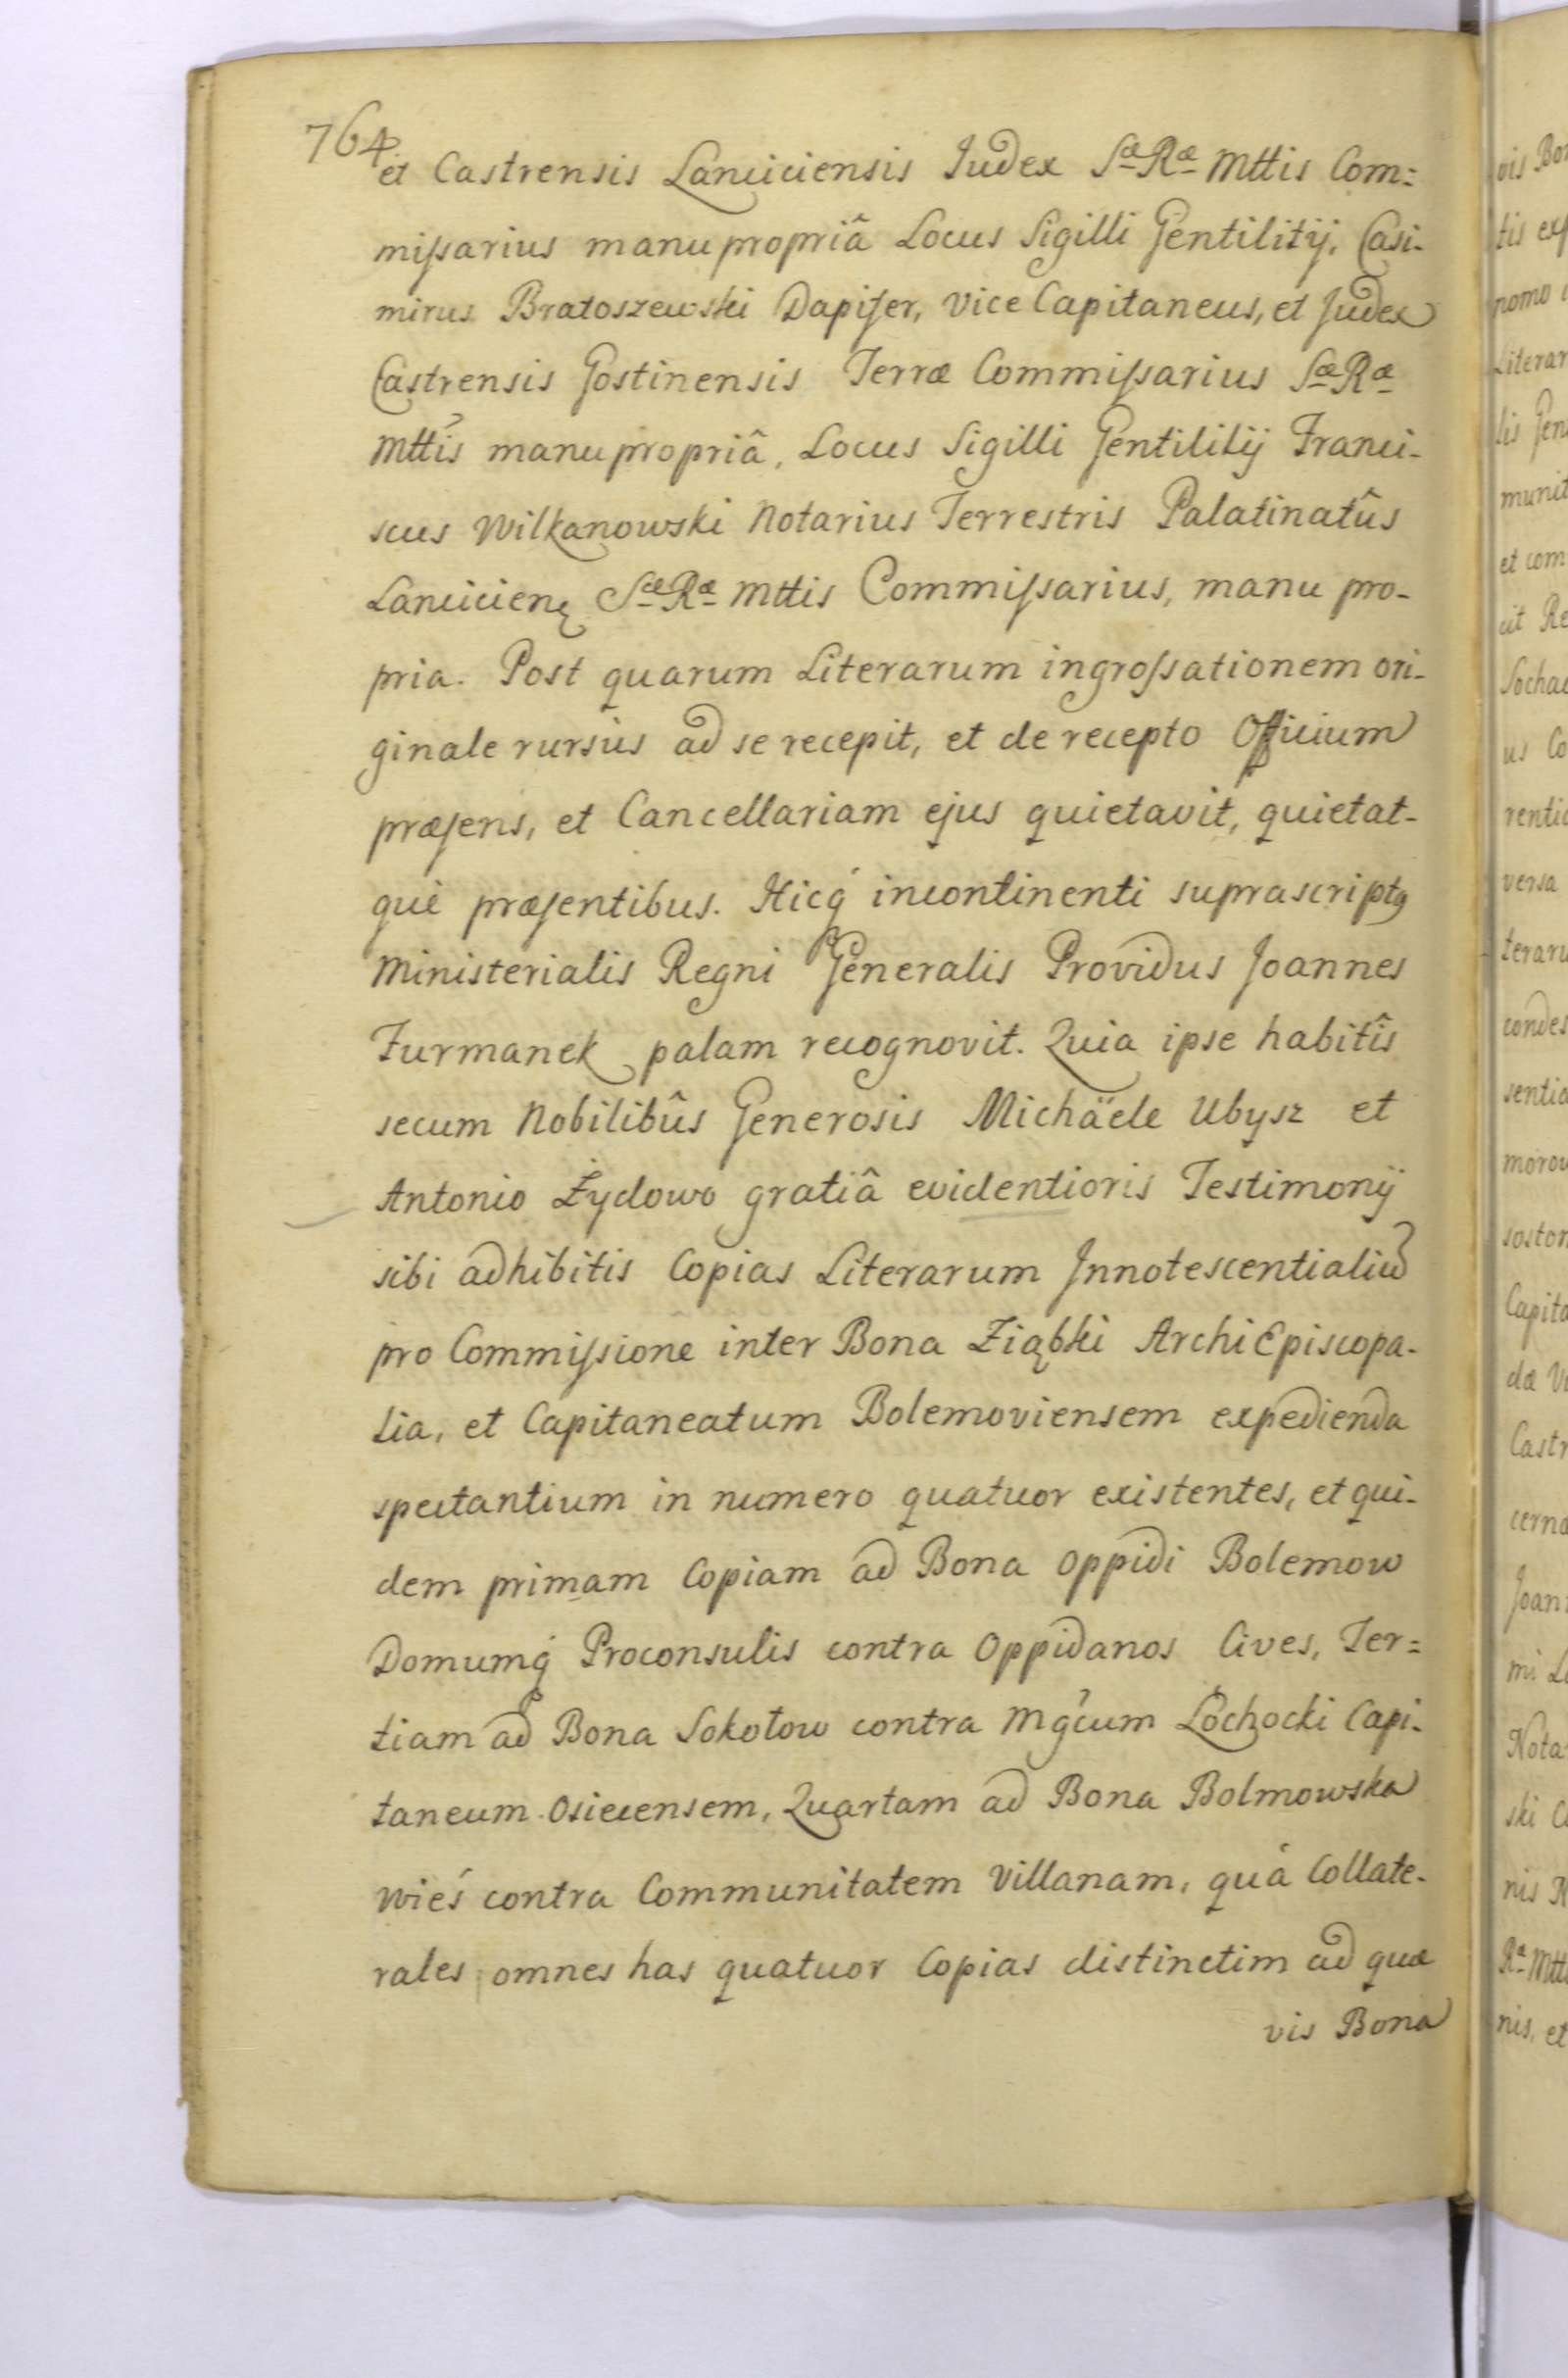 764
et Castrensis Lanciciensis Judex Sæ Ræ Mttis Com=
missarius manu propriâ Locus Sigilli Gentilitij. Casi-
mirus Bratoszewski Dapifer, Vice Capitaneus, et Judex
Castrensis Gostinensis Terræ Commissarius Sæ Ræ
Mttis manu propriâ, Locus Sigilli Gentilitij Franci-
scus Wilkanowski Notarius Terrestris Palatinatûs
Lancicien Sæ Ræ Mttis Commissarius, manu pro-
pria. Post quarum Literarum ingrossationem ori-
ginale rursus ad se recepit, et de recepto Officium
præsens, et Cancellariam ejus quietavit, quietat-
què præsentibus. Hicq́ incontinenti suprascriptꝯ
Ministerialis Regni Generalis Providus Joannes
Furmanek palam recognovit. Quia ipse habitîs
secum Nobilibûs Generosis Michäele Ubysz et
Antonio Żydowo gratiâ evidentioris Testimonij
sibi adhibitis Copias Literarum Innotescentialiũ
pro Commissione inter Bona Ziąbki ArchiEpiscopa-
lia, et Capitaneatum Bolemoviensem expedienda
spectantium in numero quatuor existentes, et qui-
dem primam Copiam ad Bona Oppidi Bolemow
Domumq́ Proconsulis contra Oppidanos Cives, Ter=
tiam ad Bona Sokołow contra Mgcum Lochocki Capi-
taneum Osiecensem, Quartam ad Bona Bolmowska
wieś contra Communitatem Villanam, quá Collate-
rales omnes has quatuor Copias distinctim ad quæ
vis Bona